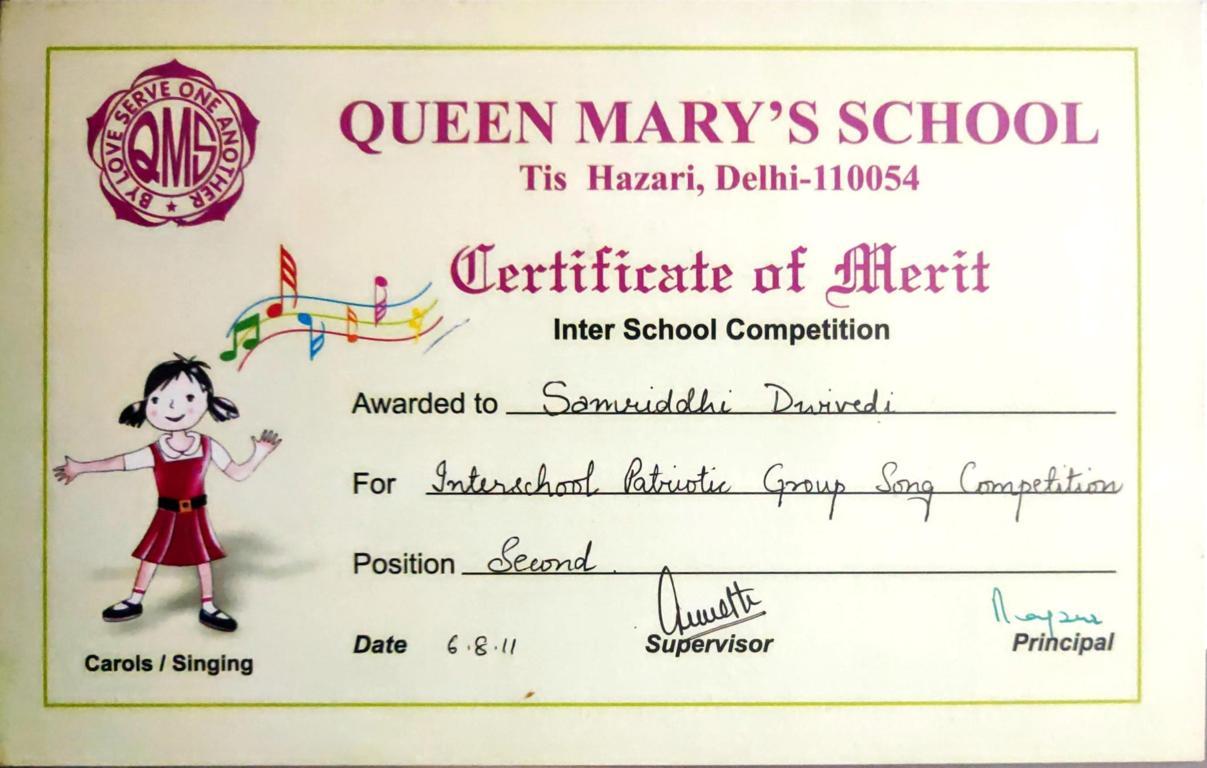 BY LOVE SERVE ONE ANOTHER
QMS
QUEEN MARY'S SCHOOL
Tis Hazari, Delhi-110054
Certificate of Merit
Inter School Competition
Awarded to Samriddhi Dwivedi
For Interschool Patriotic Group Song Competition
Position Second.
Date 6.8.11
Supervisor
Principal
Carols / Singing